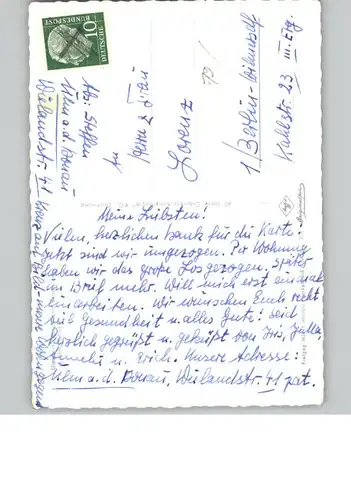 10
DEUTSCHE
BUNDESPOST
Abs: Steffen
Ulm a.d. Donau
Wielandstr. 41
Kreuz auf Bild = neue Wohnung
An
Herrn & Frau
Lorenz
1/Berlin-Wilmersdf
Kahlstr. 23 III. Etg.
Meine Liebsten!
Vielen, herzlichen Dank für die Karte!
Jetzt sind wir umgezogen. Per Wohnung
haben wir das große Los gezogen, später
im Brief mehr. Will mich erst einmal
einarbeiten. Wir wünschen Euch recht
viel Gesundheit u. alles Gute! Seid
herzlich gegrüßt u. geküßt von
u. Erich. Unsere Adresse:
Ulm a.d. Donau, Wielandstr. 41 pat.